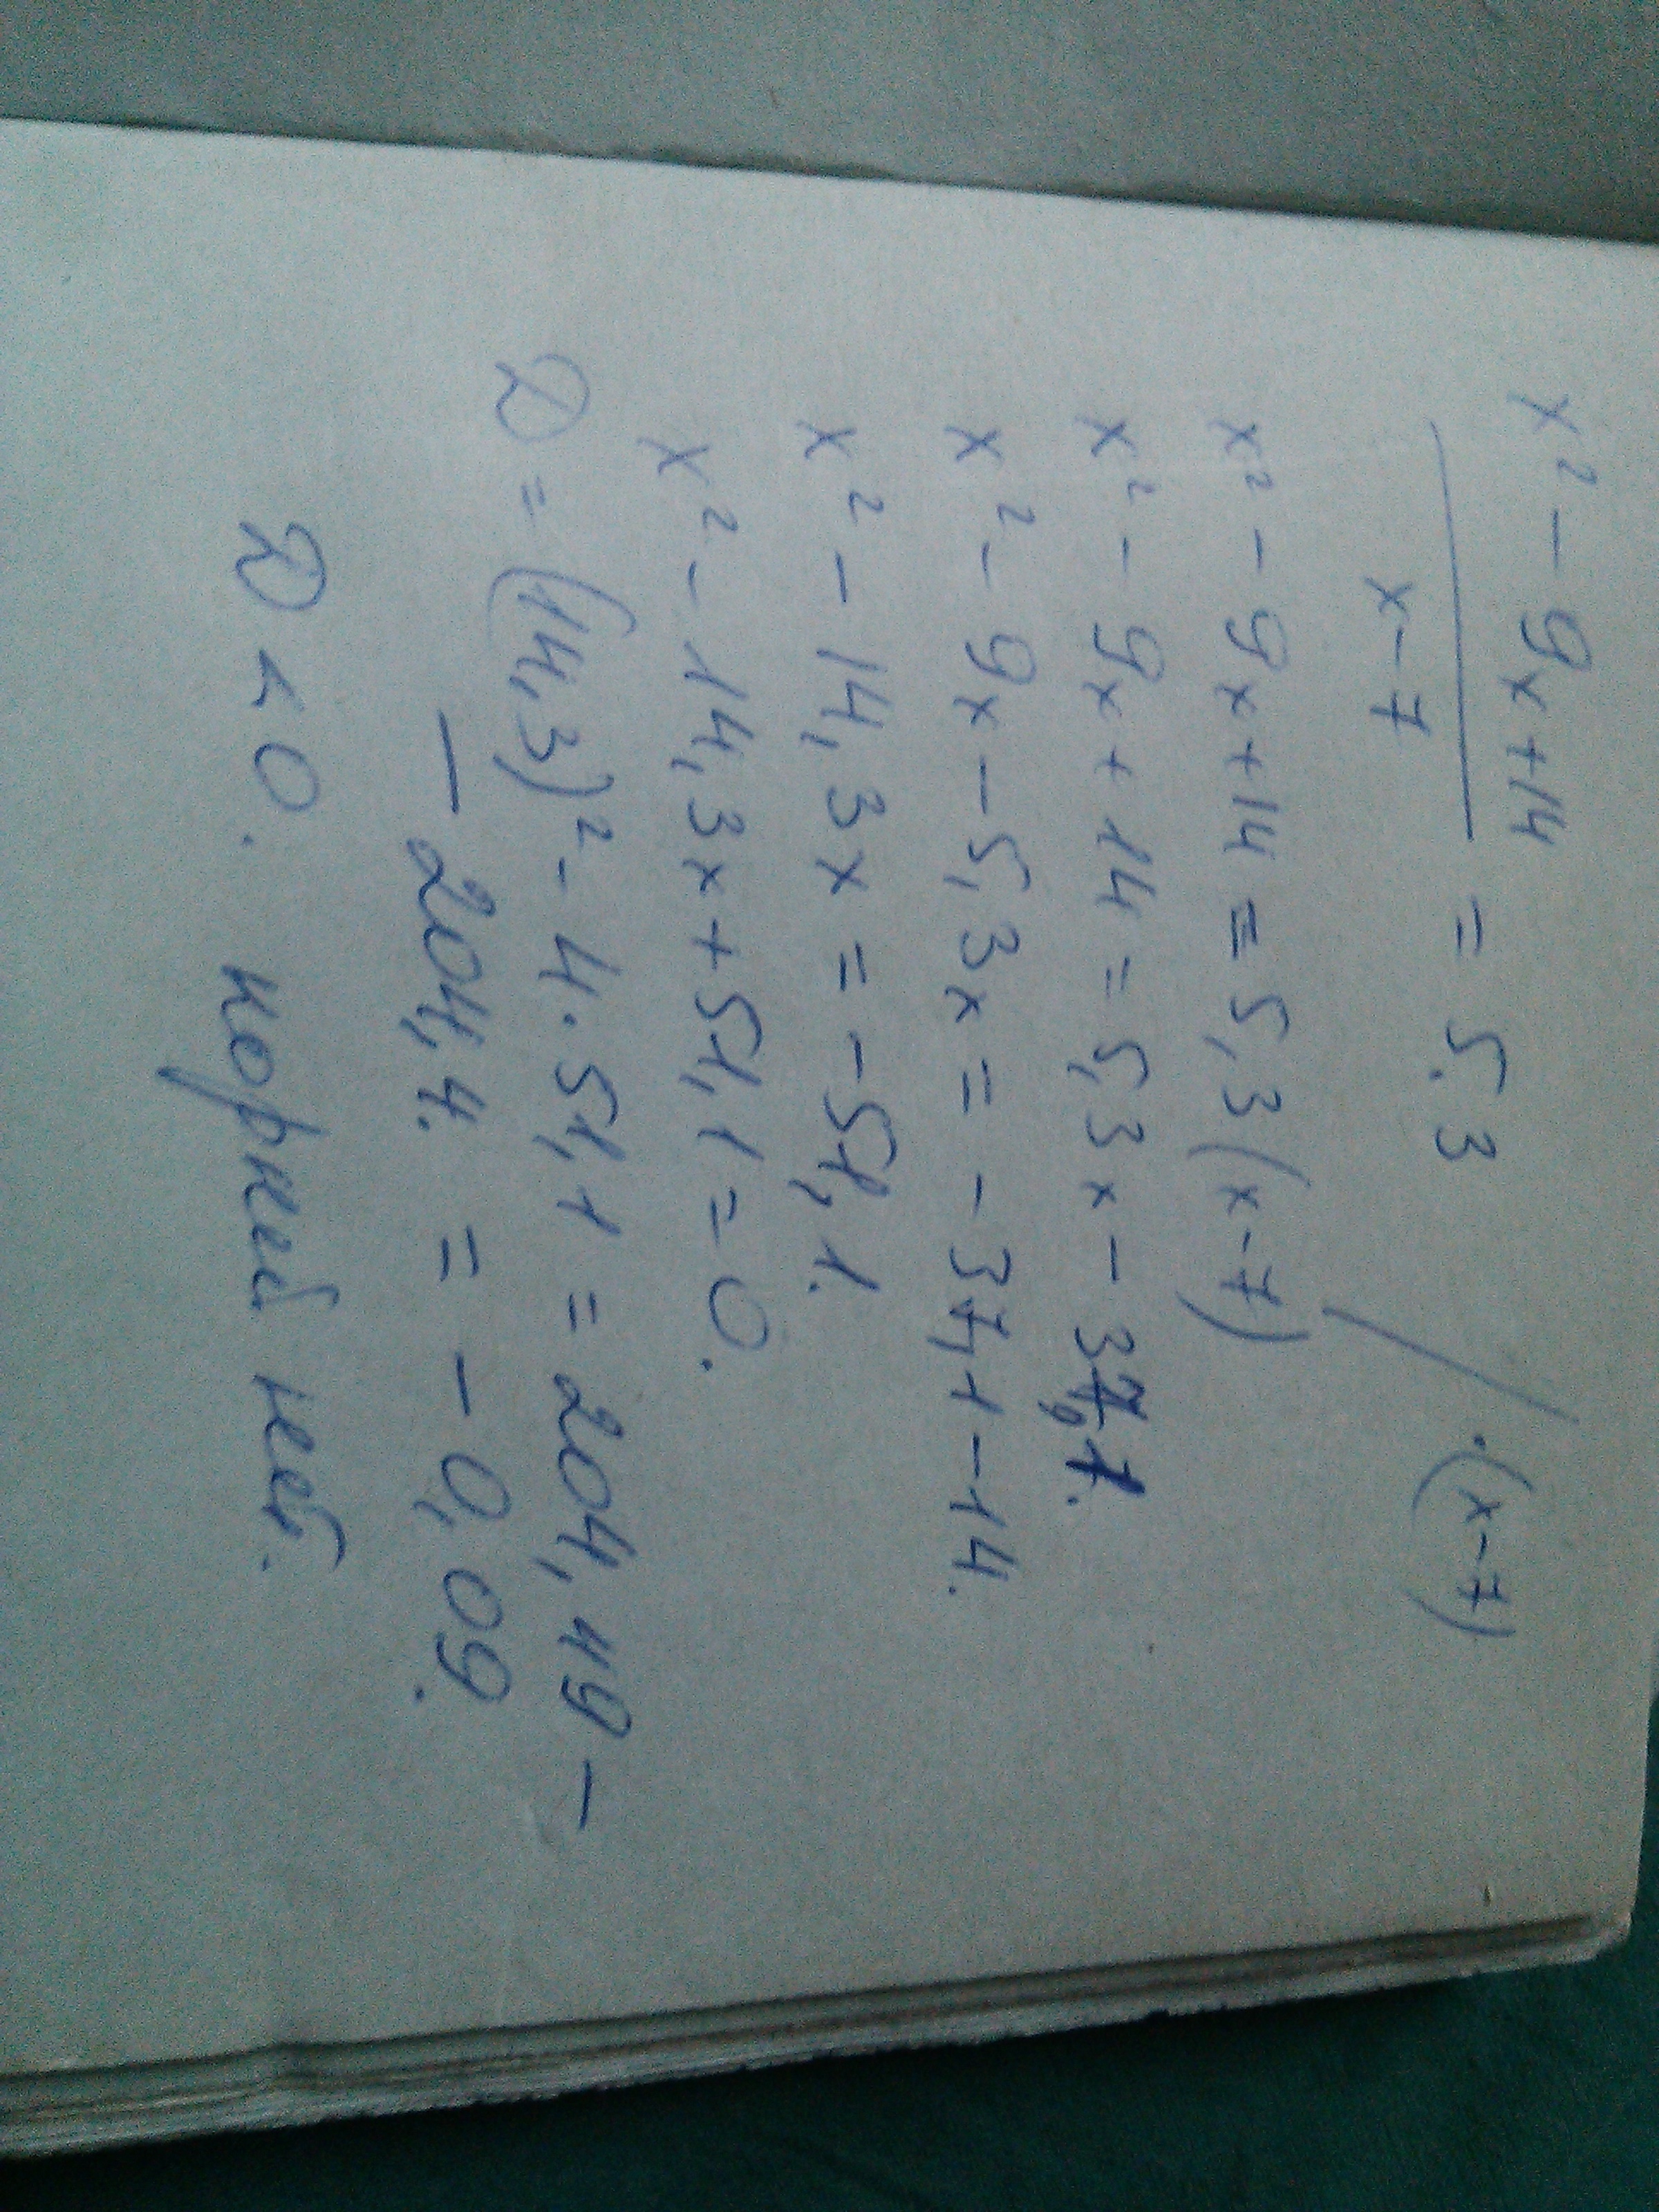 x² - 9x + 14 / x - 7 = 5.3 / · (x - 7)
x² - 9x + 14 = 5,3 (x - 7)
x² - 9x + 14 = 5,3x - 37,1.
x² - 9x - 5,3x = - 37,1 - 14.
x² - 14,3x = - 51,1.
x² - 14,3x + 51,1 = 0.
D = (14,3)² - 4 · 51,1 = 204,49 -
- 204,4. = - 0,09.
D < 0. корней нет.